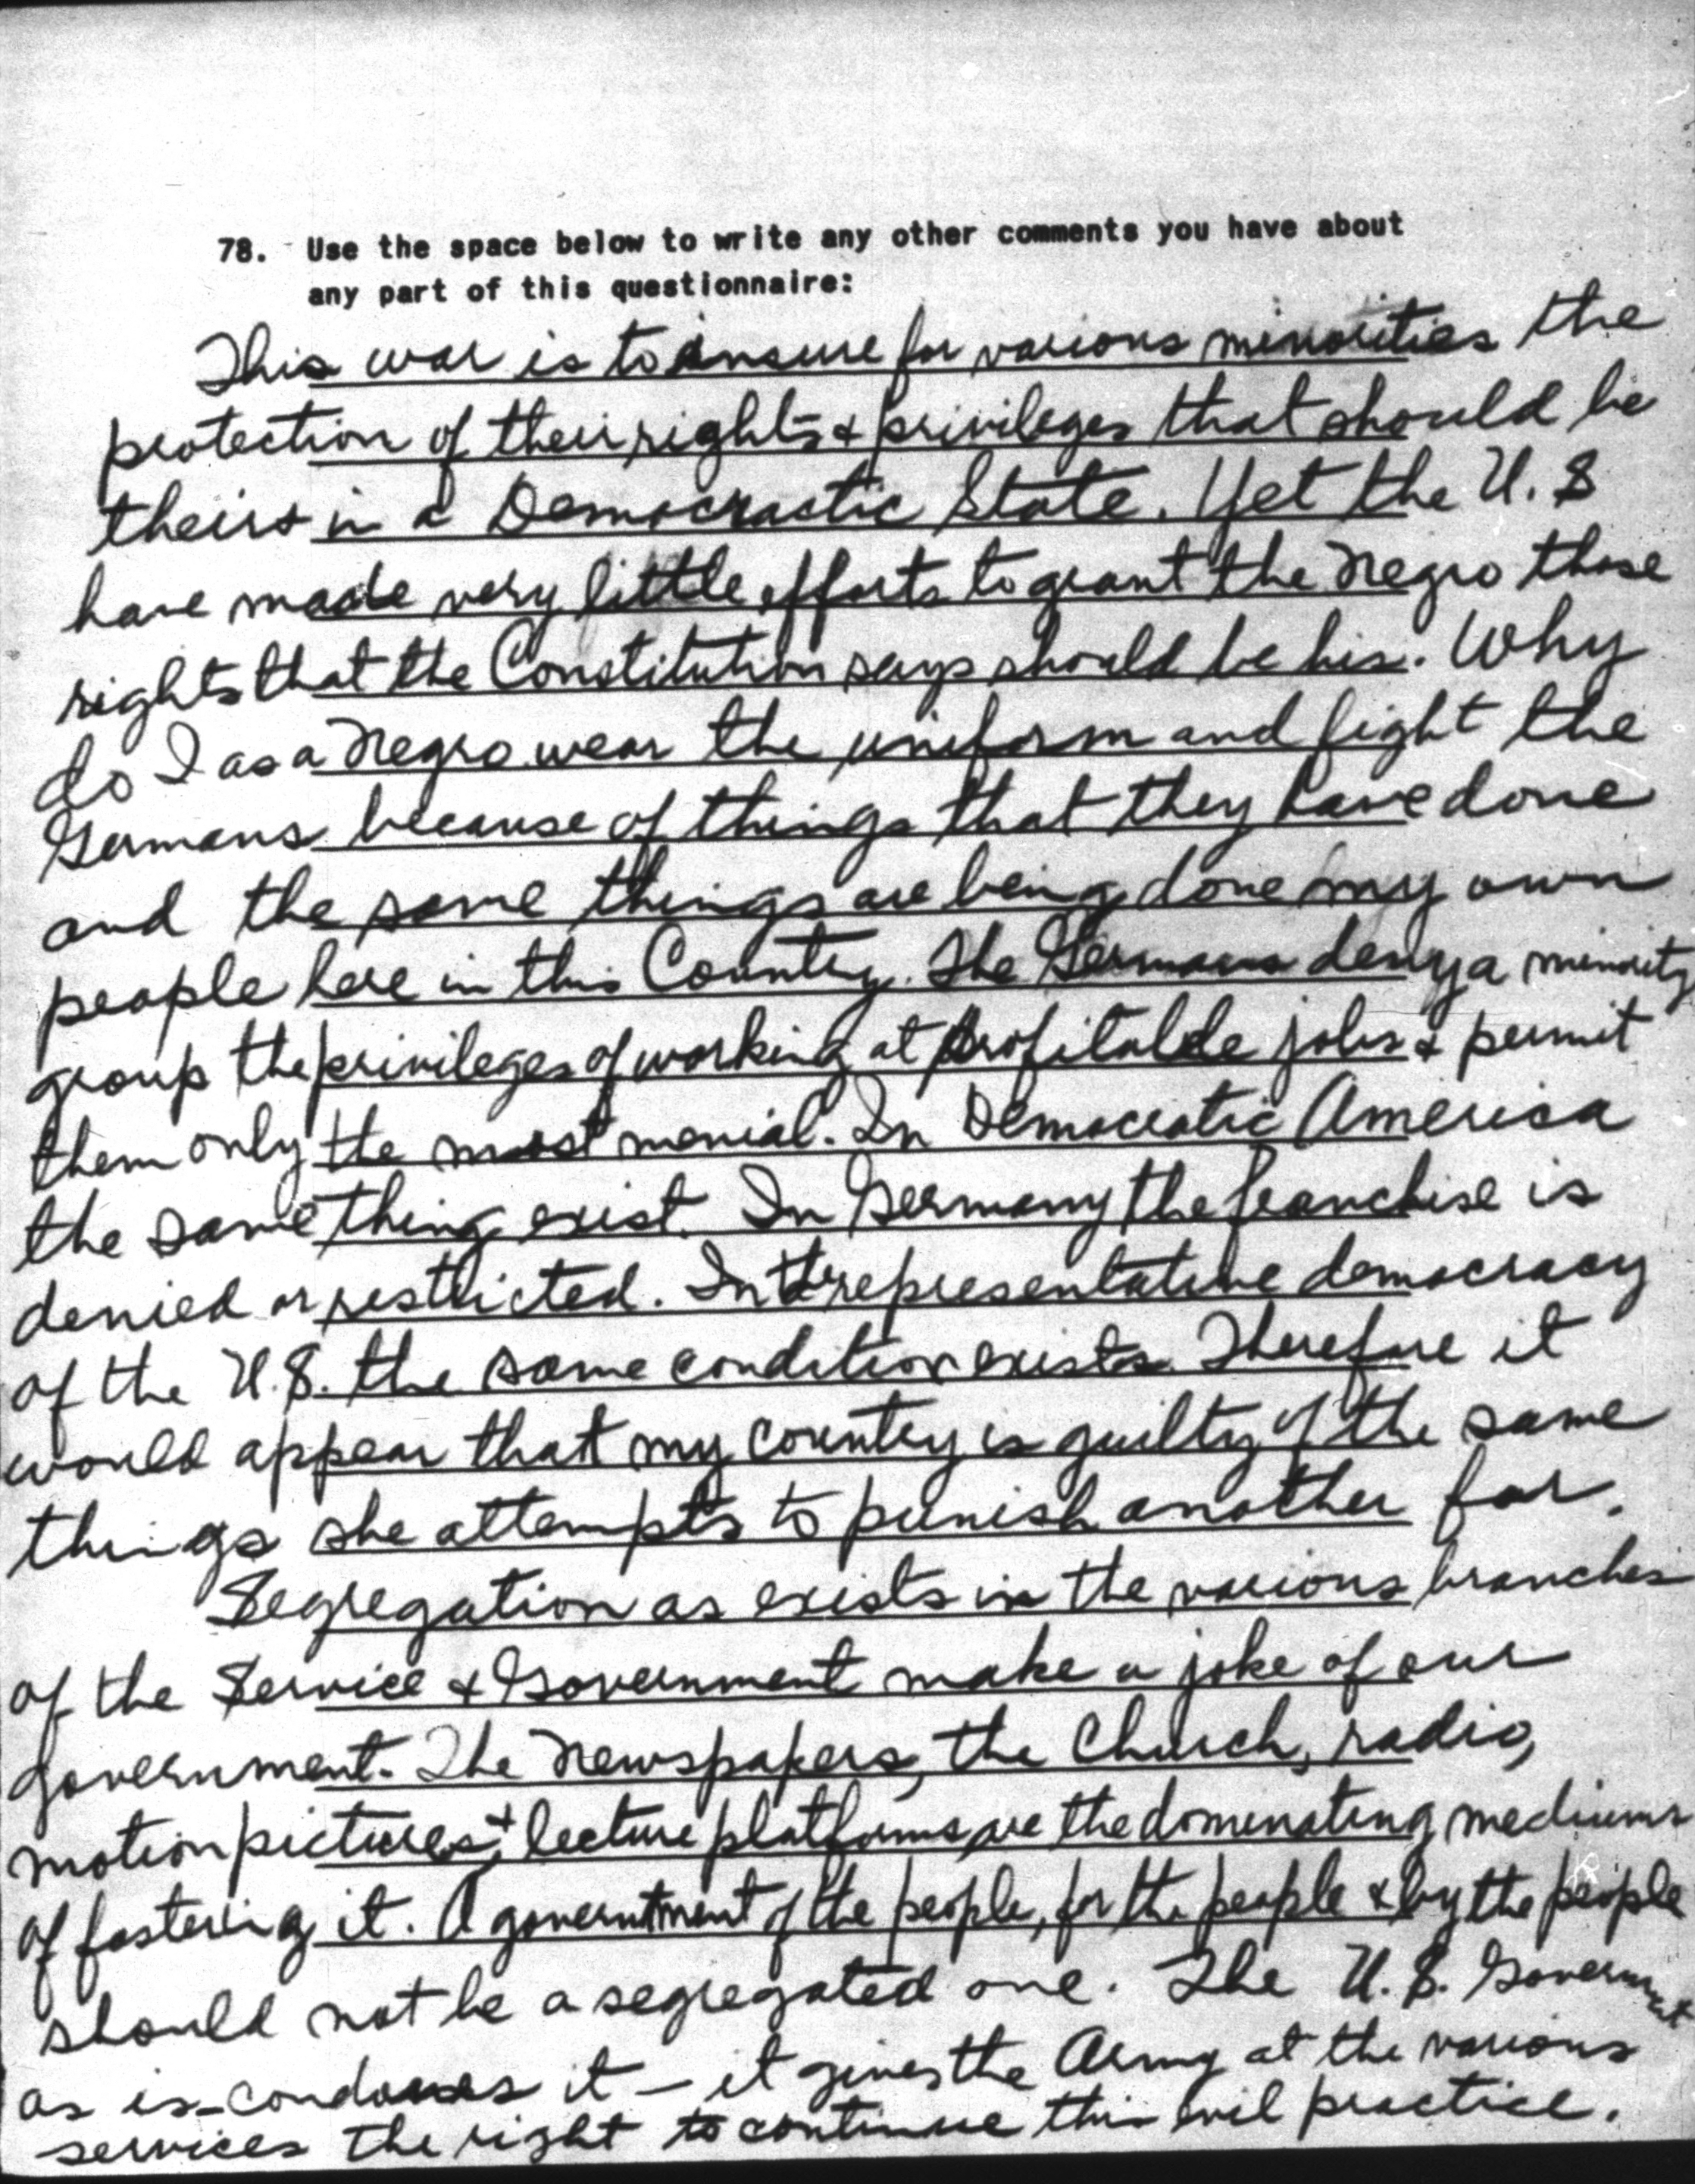 78. Use the space below to write any other comments you have about
any part of this questionnaire:
This war is to insure for various minorities the
protection of their rights & privileges that should be
theirs in a Democractic State. Yet the U.S
have made very little efforts to grant the Negro those
rights that the Constitution says should be his. Why
do I as a Negro wear the uniform and fight the
Germans because of things that they have done
and the same things are being done my own
people here in this Country. The Germans deny a minority
group the privileges of working at profitable jobs & permit
them only the most menial. In Democratic America
the same thing exist. In Germany the franchise is
denied or restricted. In the representative democracy
of the U.S. the same condition exists. Therefore it
would appear that my country is guilty of the same
things she attempts to punish another for.
Segregation as exists in the various branches
of the Service & Government make a joke of our
government. The Newspapers, the Church, radio,
motion pictures & lecture platforms are the dominating mediums
of fostering it. A government of the people, for the people & by the people
should not be a segregated one. The U.S. Government
as is condones it — it gives the Army at the various
services the right to continue this evil practice.